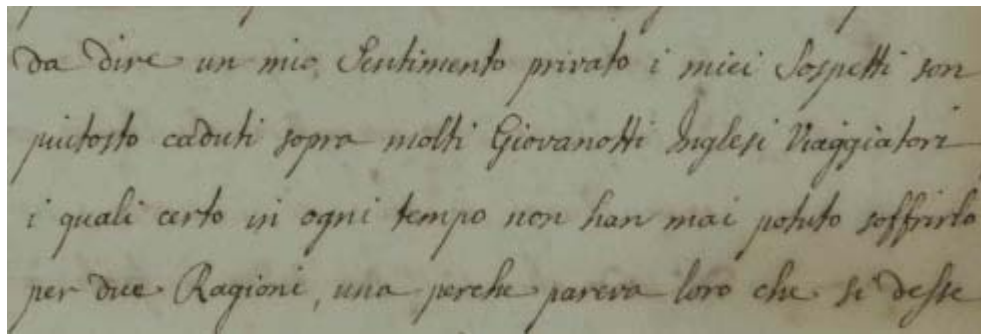 da dire un mio Sentimento privato i miei Sospetti son
piutosto caduti sopra molti Giovanotti Inglesi Viaggiatori
i quali certo in ogni tempo non han mai potuto soffrirlo
per due Ragioni, una perche pareva loro che si desse